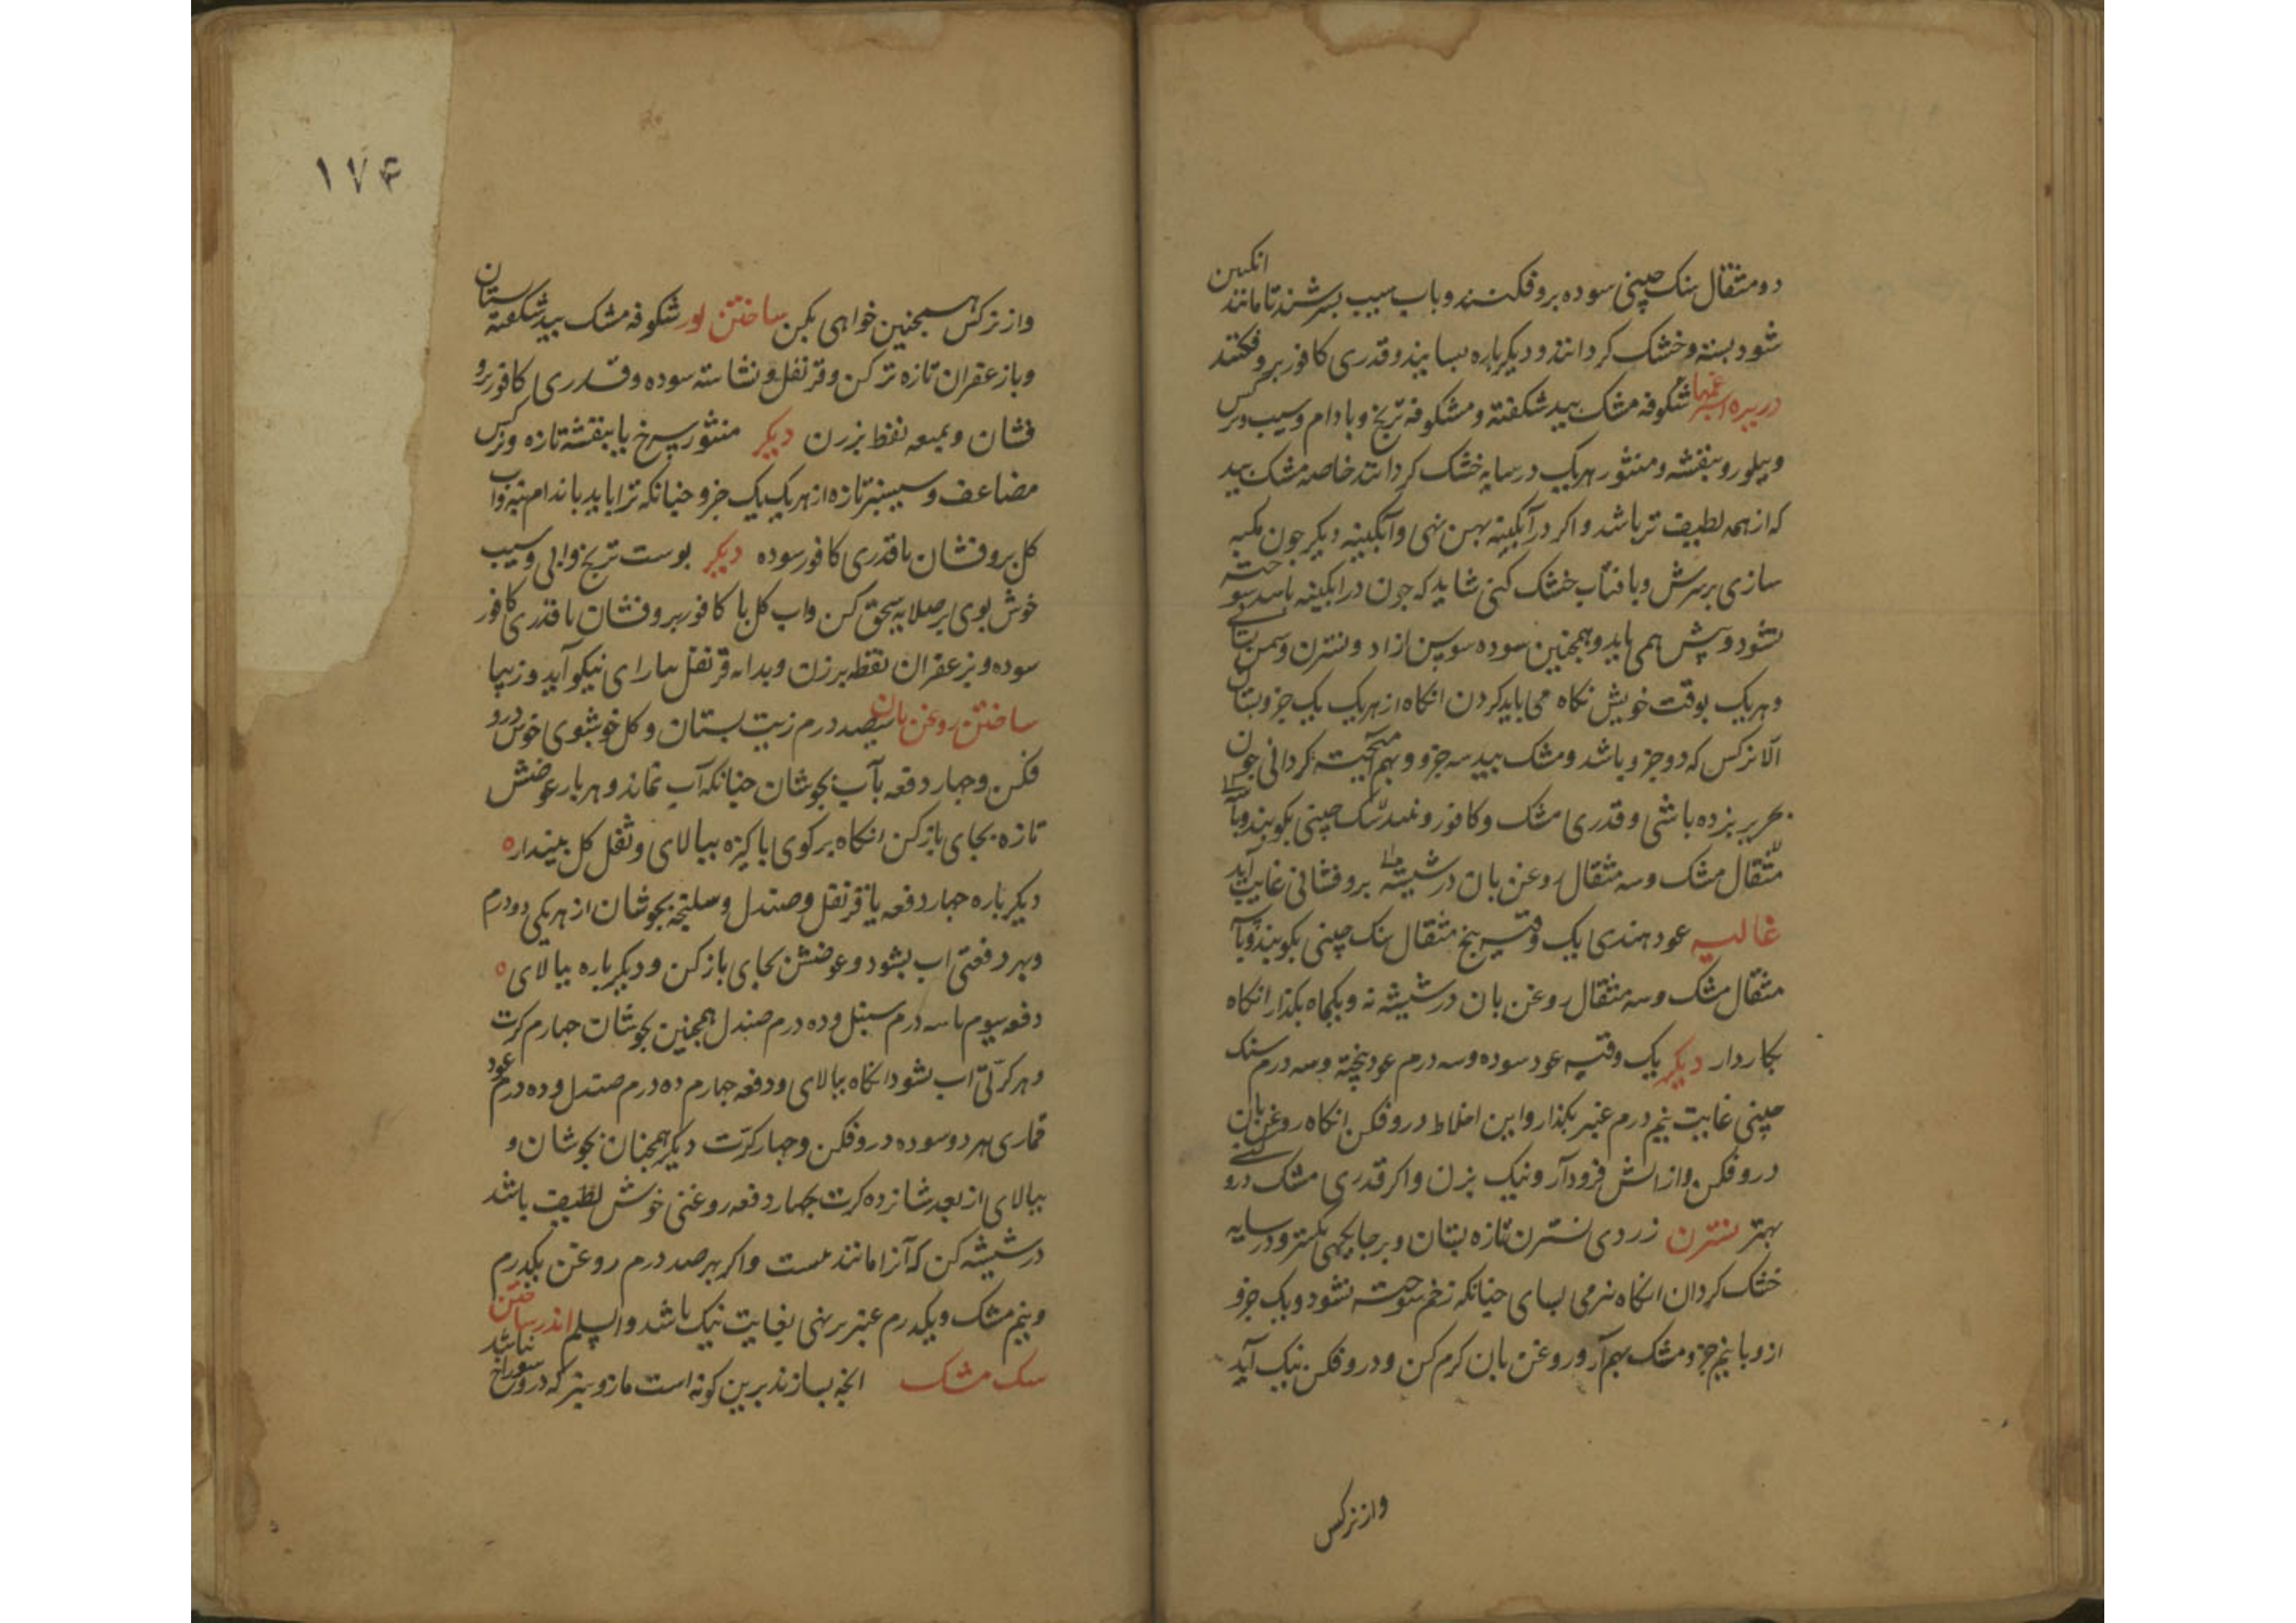 دو مثقال سنک چینی سوده برو فکنند وباب سیب بسرشند تا مانند انکبین
شود بسته وخشک کردانند و دیکرباره بسایند وقدری کافور برو فکنند
شکوفه مشک بید شکفته و مشکوفه ترنج وبادام وسیب ونرکس
ونیلوفر وبنفشه ومنثور هریک در سایه خشک کردانند خاصه مشک بید
که از همه لطیف تر باشد واکر در آبکینه پهن نهی وآبکینه دیکر جون مکبه
سازی بر سرش وبافتاب خشک کنی شاید که جون در ابکینه باشد سوخته
نشود و همی باید وهمجنین سوده سوسن ازاد ونسترن وسمن بستانی
وهریک بوقت خویش نکاه می باید کردن انکاه از هریک یک جزو بستان
الا نرکس که دو جزو باشد ومشک بید سه جزو وبهم آمیخته کردانی جون
بحریر بزده باشی وقدری مشک وکافور و سک چینی بکوبند وبا
مثقال مشک وسه مثقال روغن بان در شیشه برو فشانی غایت آید
غالیه عود هندی یک وقیه پنج مثقال سنک چینی بکوبند وبا
مثقال مشک وسه مثقال روغن بان در شیشه نه ویکماه بکذار انکاه
بکار دار دیکر یک وقیه عود سوده وسه درم عود پخته وسه درم سنک
چینی غایت نیم درم عنبر بکذار واین اخلاط درو فکن انکاه روغن بان
درو فکن واز اتش فرود آر ونیک بزن واکر قدری مشک درو کنی
بهتر نسترن زردی نسترن تازه بستان وبر جایکهی بکستر ودر سایه
خشک کردان انکاه بنرمی بسای جنانکه زخم سوخته نشود ویک جزو
ازو با نیم جزو مشک بهم آر وروغن بان کرم کن ودرو فکن نیک آید
واز نرکس
۱۷۴
واز نرکس همجنین خواهی بکن ساختن شکوفه مشک بید شکفته بستان
وبا زعفران تازه تر کن وقرنفل ونشاسته سوده وقدری کافور برو
فشان وبمیعه نقط بزرن دیکر منثور سرخ یا بنفشه تازه ونرکس
مضاعف وسیسنبر تازه از هریک یک جزو جنانکه ترا باید باندام بنه واب
کل برو فشان با قدری کافور سوده دیکر پوست ترنج وابی وسیب
خوش بوی بر صلایه سحق کن واب کل با کافور برو فشان با قدری کافور
سوده وبزعفران نقطه برزن وبدانه قرنفل بیارای نیکو آید وزیبا
ساختن روغن بان سیصد درم زیت بستان وکل خوشبوی خوش درو
فکن وجهار دفعه بآب بجوشان جنانکه آب نماند وهر بار عوضش
تازه بجای باز کن انکاه برکوی پاکیزه بپالای وثفل کل بینداز
دیکرباره جهار دفعه با قرنفل وصندل وسلیخه بجوشان از هریکی دو درم
وبهر دفعتی اب بشود وعوضش بجای باز کن ودیکرباره بپالای
دفعه سیوم با سه درم سنبل وده درم صندل همجنین بجوشان جهارم کرت
وهر کرتی اب بشود انکاه بپالای ودفعه جهارم ده درم صندل وده درم عود
قماری هر دو سوده درو فکن وجهار کرت دیکر همجنان بجوشان و
بپالای از بعد شانزده کرت بجهار دفعه روغنی خوش لطیف باشد
در شیشه کن که آنرا مانند نیست واکر بهر صد درم روغن یکدرم
ونیم مشک ویکدرم عنبر برنهی بغایت نیک باشد والسلم اندر ساختن
سک مشک انجه بسازند برین کونه است مازو سبز که درو سوراخ نباشد